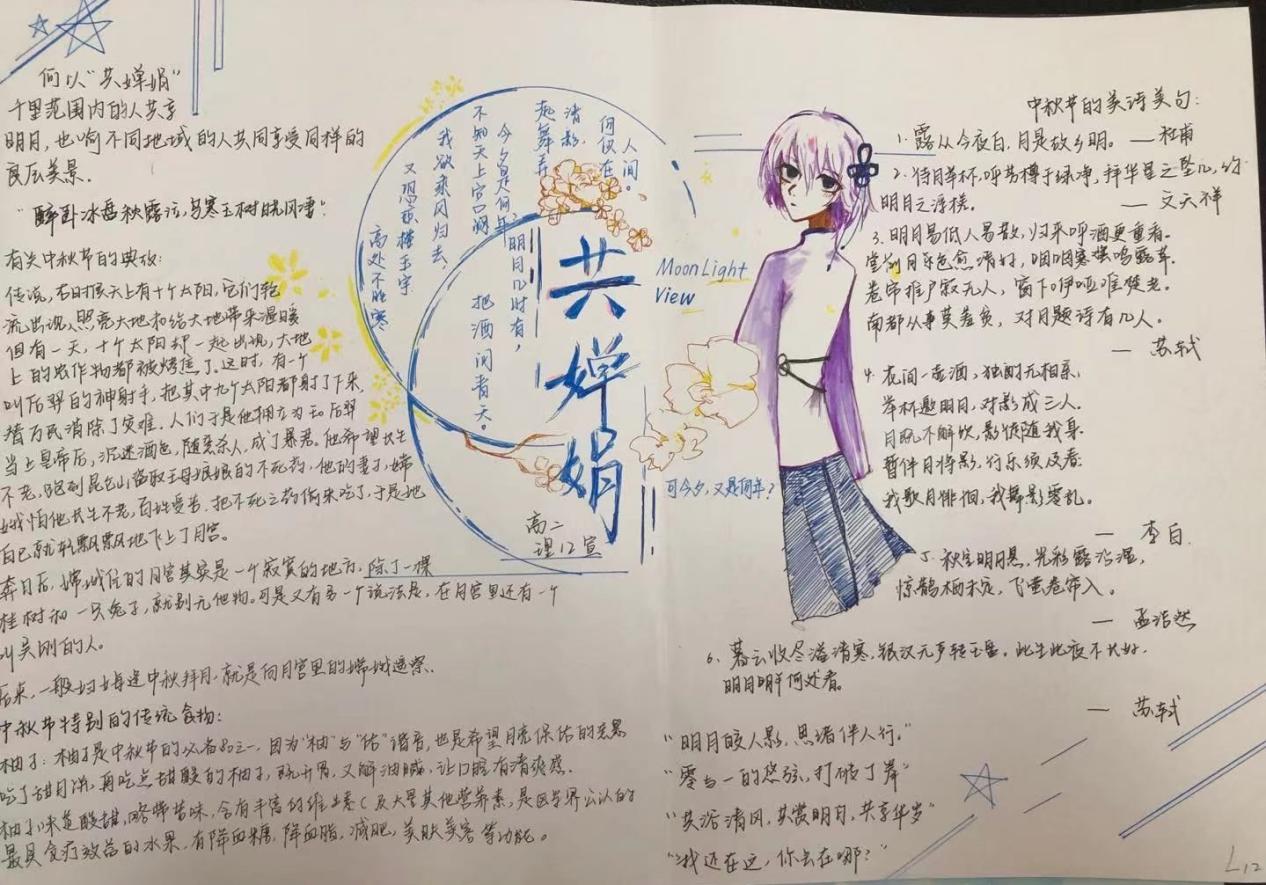 何以"共婵娟"
千里范围内的人共享
明月,也喻不同地域的人共同享受同样的
良辰美景.
有关中秋节的典故:
传说,古时候天上有十个太阳,它们轮
流出现,照亮大地和给大地带来温暖
但有一天,十个太阳却一起出现,大地
上的农作物都被烤焦了.这时,有一个
叫后羿的神射手,把其中九个太阳都射了下来
替万民消除了灾难.人们于是他拥立为王 后羿
当上皇帝后,沉迷酒色,随意杀人,成了暴君.他希望长生
不老,跑到昆仑山盗取王母娘娘的不死药,他的妻子,嫦
娥怕他长生不老,百姓受苦.把不死之药偷来吃了,于是她
自己就轻飘飘地飞上了月宫.
奔月后,嫦娥住的月宫其实是一个寂寞的地方,除了一棵
桂树和一只兔子,就别无他物.可是又有另一个说法是,在月宫里还有一个
叫吴刚的人.
后来,一般妇女每逢中秋拜月,就是向月宫里的嫦娥遥祭.
中秋节特别的传统食物:
柚子:柚子是中秋节的必备品之一,因为"柚"与"佑"谐音,也是希望月亮保佑的意思
吃了甜月饼,再吃点甜酸的柚子,既开胃,又解油腻,让口腔有清爽感.
柚子味道酸甜,略带苦味,含有丰富的维生素C及大量其他营养素,是医学界公认的
最具食疗效益的水果,有降血糖,降血脂,减肥,美肤美容等功能。
明月几时有,
把酒问青天。
不知天上宫阙
今夕是何年?
我欲乘风归去,
又恐琼楼玉宇
高处不胜寒
起舞弄
清影,
何似在
人间。
共婵娟
高二
理12宣
MoonLight
View
可今夕,又是何年?
中秋节的美诗美句:
1. 露从今夜白,月是故乡明。 —杜甫
明月之浮槎。 —文天祥
3. 明月易低人易散,归来呼酒更重看.
堂前月色愈清好,咽咽寒螀鸣露草.
卷帘推户寂无人,窗下咿哑唯楚老.
南都从事莫羞贫,对月题诗有几人.
— 苏轼
4. 花间一壶酒,独酌无相亲;
举杯邀明月,对影成三人.
月既不解饮,影徒随我身.
暂伴月将影,行乐须及春.
我歌月徘徊,我舞影零乱。
— 李白
5. 秋空明月悬,光彩露沾湿,
惊鹊栖未定,飞萤卷帘入。
— 孟浩然
6. 暮云收尽溢清寒,银汉无声转玉盘。此生此夜不长好,
明月明年何处看。
— 苏轼
"明月皎人影,思绪伴人行."
"共浴清风,共赏明月,共享华岁"
"我还在这,你去在哪?"
L12